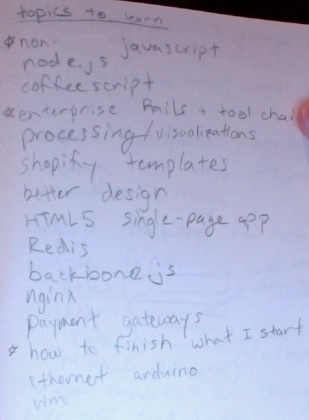 topics to learn
* non- javascript
node.js
coffeescript
* enterprise Rails + tool chai
processing/visualizations
shopify templates
better design
HTML5 single-page app
Redis
backbone.js
nginx
payment gateways
* how to finish what I start
ethernet arduino
vim